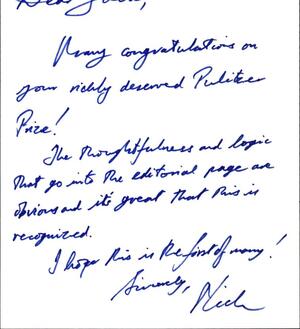 Dear
Many congratulations on
your richly deserved Pulitzer
Prize!
The thoughtfulness and logic
that go into the editorial page are
obvious and it's great that this is
recognized.
I hope this is the first of many!
Sincerely,
Nick